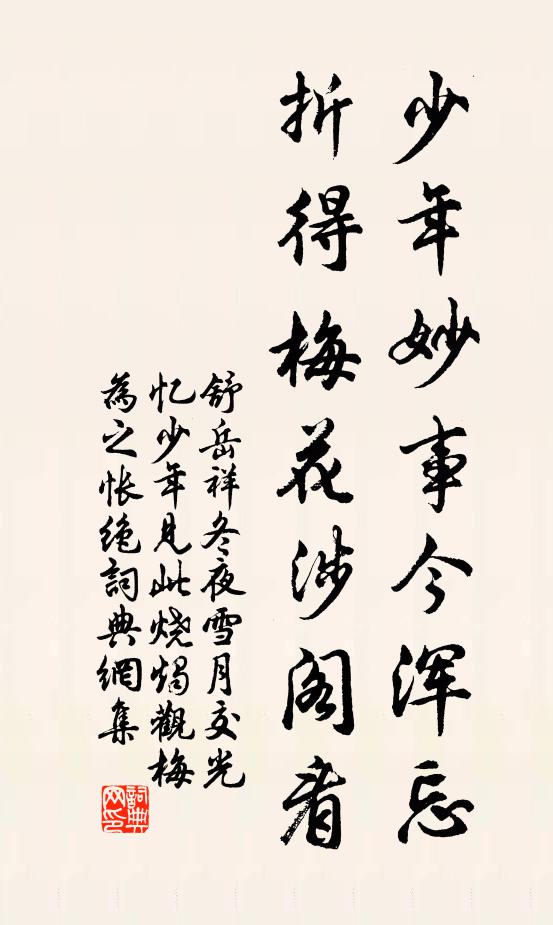 少年妙事今浑忘
折得梅花涉阁看
舒岳祥冬夜雪月交光
忆少年見此烧燭觀梅
為之悵绝詞典網集
詞典网印